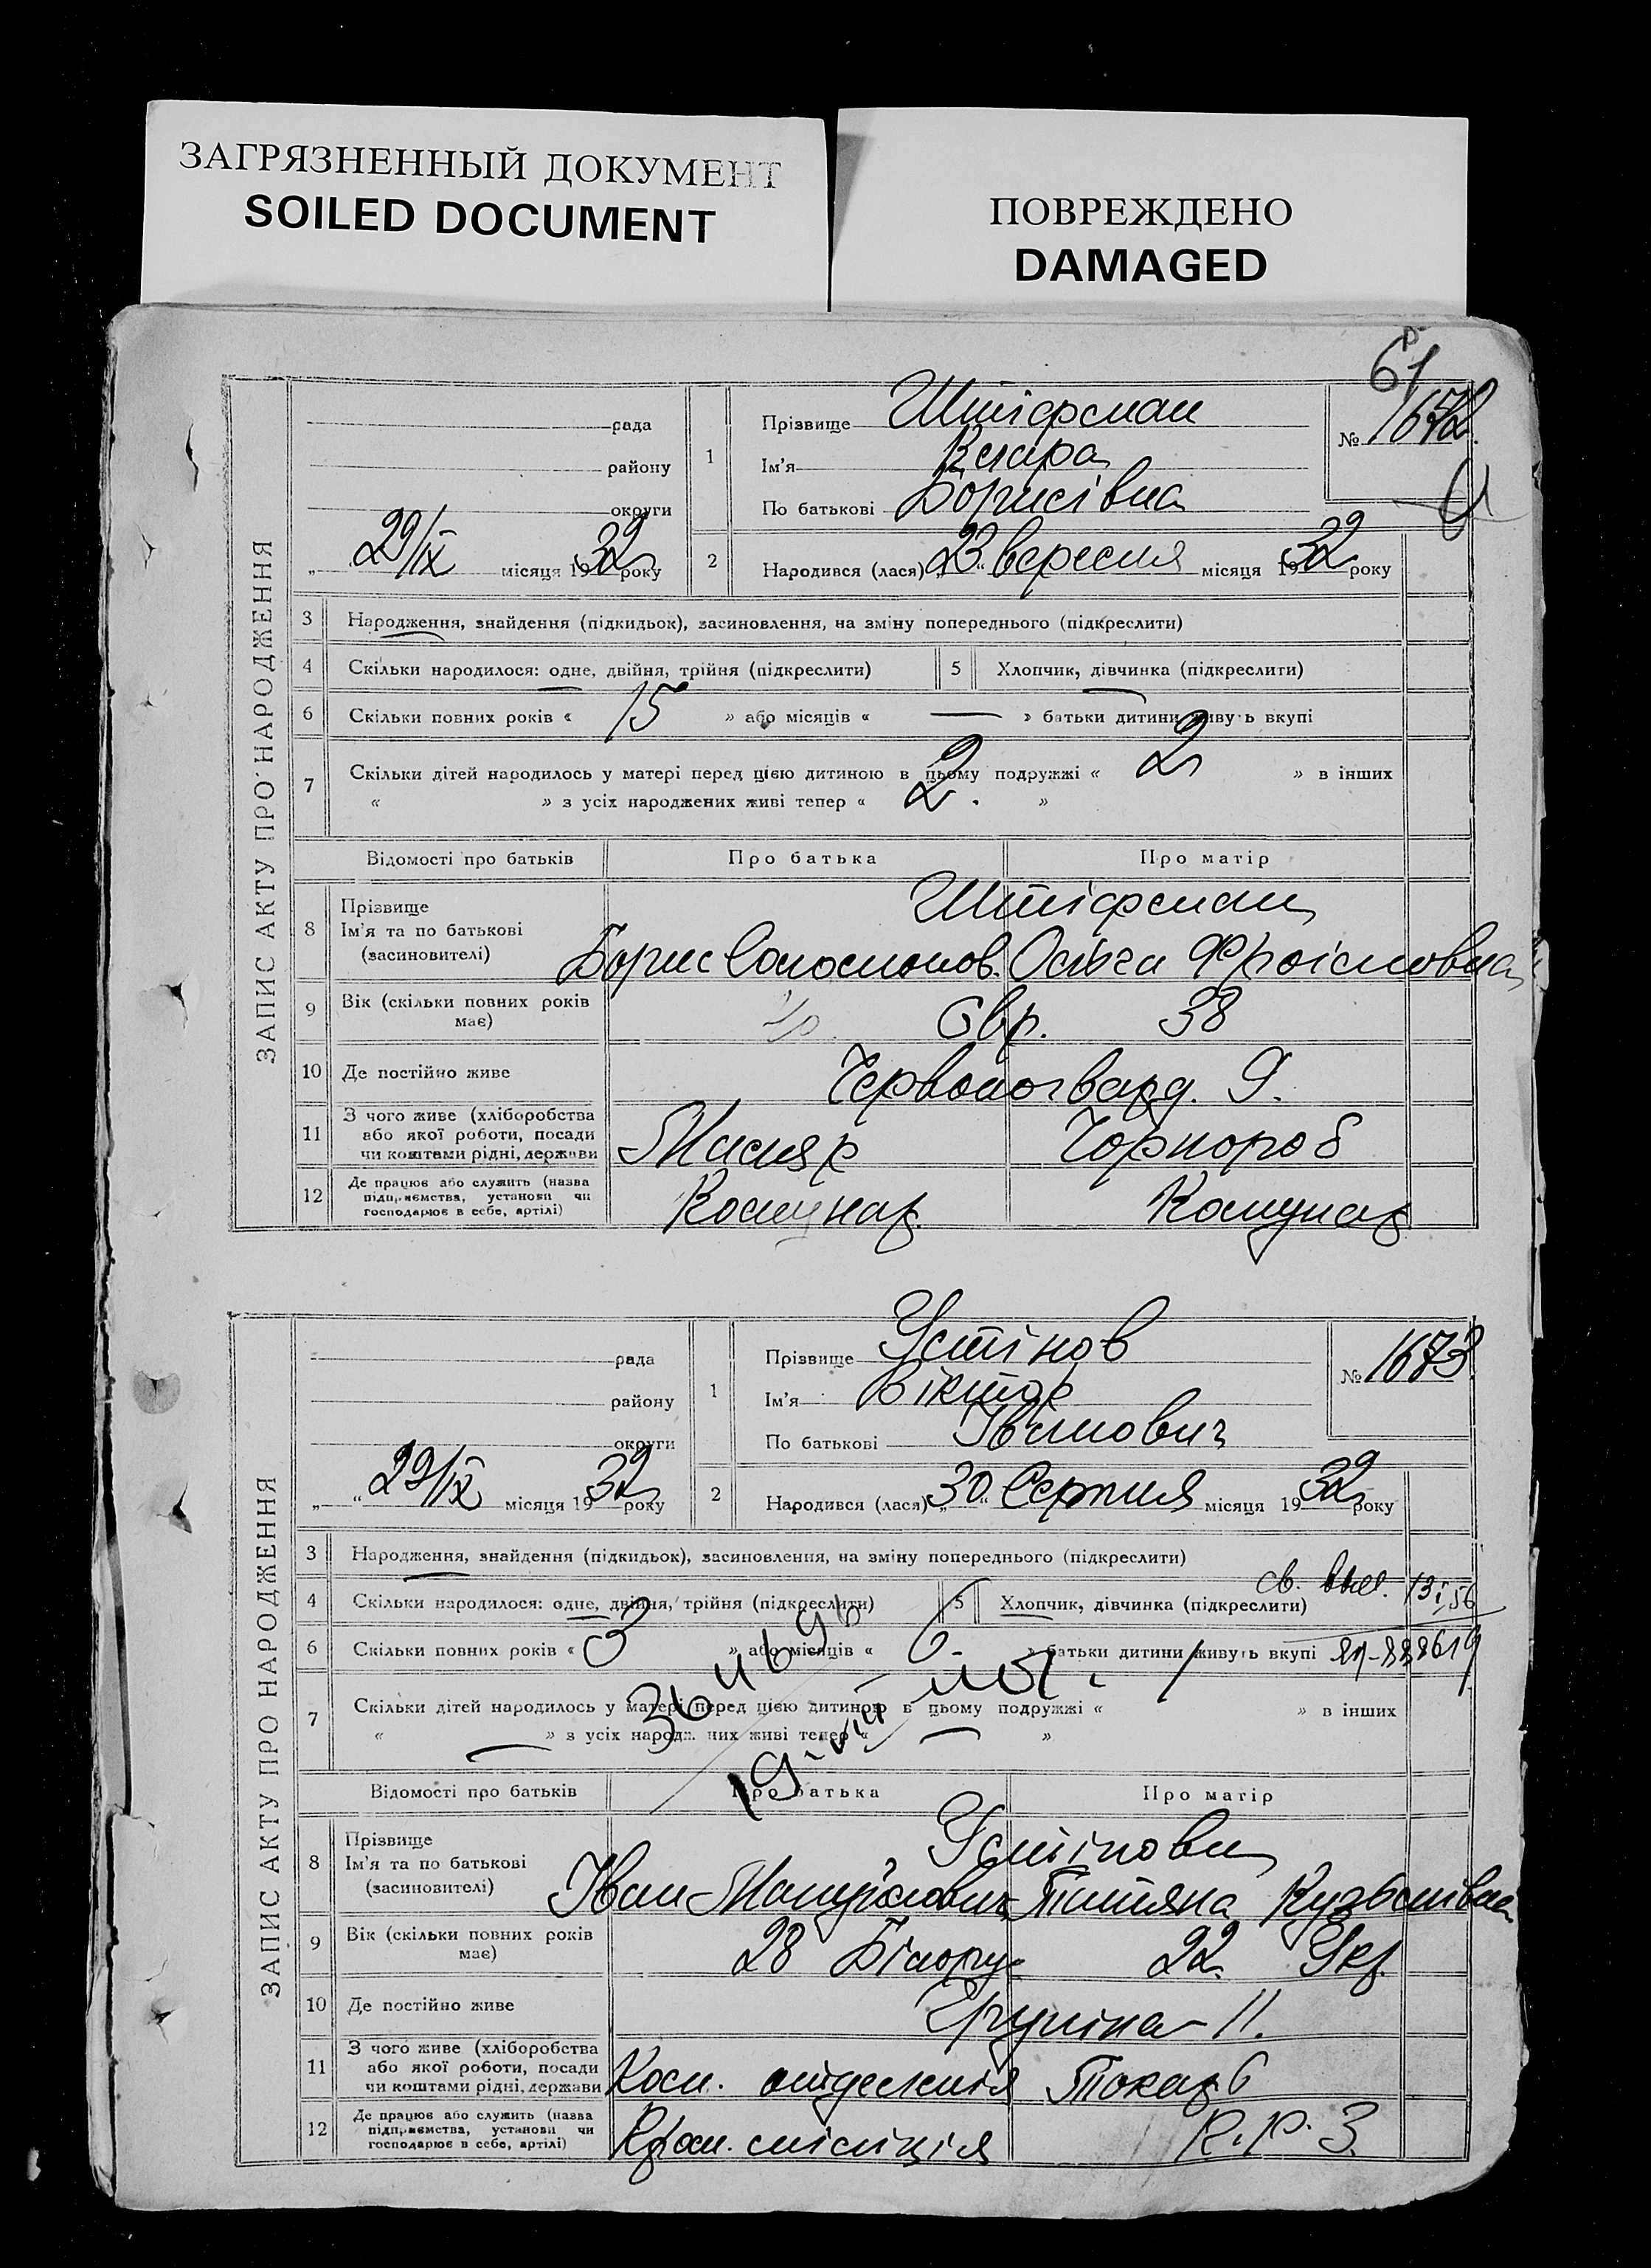 ЗАГРЯЗНЕННЫЙ ДОКУМЕНТ
SOILED DOCUMENT
ПОВРЕЖДЕНО
DAMAGED
61
ЗАПИС АКТУ ПРО НАРОДЖЕННЯ
рада
району
округи
29/IX місяця 1932 року
1
Прізвище Штіфман
Ім'я Клара
По батькові Борисівна
№ 1672.
2
Народився (лася) „23“ вересня місяця 1932 року
3 Народження, знайдення (підкидьок), засиновлення, на зміну попереднього (підкреслити)
4 Скільки народилося: одне, двійня, трійня (підкреслити)
5 Хлопчик, дівчинка (підкреслити)
6 Скільки повних років « 15 » або місяців « — » батьки дитини живуть вкупі
7 Скільки дітей народилось у матері перед цією дитиною в цьому подружжі « 2 » в інших
« » з усіх народжених живі тепер « 2. »
Відомості про батьків
Про батька
Про матір
8 Прізвище
Ім'я та по батькові
(засиновителі)
Штіфман
Борис Соломонов. Ольга
9 Вік (скільки повних років
має)
Євр. 38
10 Де постійно живе
Червоногвард. 9.
11 З чого живе (хліборобства
або якої роботи, посади
чи коштами рідні, держави
Маляр
Чорнороб
12 Де працює або служить (назва
підприємства, установи чи
господарює в себе, артілі)
Комунар
Комунар
ЗАПИС АКТУ ПРО НАРОДЖЕННЯ
рада
району
округи
„ “ 29/IX місяця 1932 року
1
Прізвище Устінов
Ім'я Віктор
По батькові Іванович
№ 1673
2
Народився (лася) „30“ Серпня місяця 1932 року
3 Народження, знайдення (підкидьок), засиновлення, на зміну попереднього (підкреслити)
4 Скільки народилося: одне, двійня, трійня (підкреслити)
5 Хлопчик, дівчинка (підкреслити)
св.
6 Скільки повних років « 3 » або місяців « » батьки дитини живуть вкупі
7 Скільки дітей народилось у матері перед цією дитиною в цьому подружжі « » в інших
« — » з усіх народжених живі тепер « — »
Відомості про батьків
Про батька
Про матір
8 Прізвище
Ім'я та по батькові
(засиновителі)
Устінови
Іван Тітяна Кузьмівна
9 Вік (скільки повних років
має)
28 Білорус
22. Укр.
10 Де постійно живе
11.
11 З чого живе (хліборобства
або якої роботи, посади
чи коштами рідні, держави
Ком. отделенія
Токар 6
12 Де працює або служить (назва
підприємства, установи чи
господарює в себе, артілі)
міліція
К.Р.З.